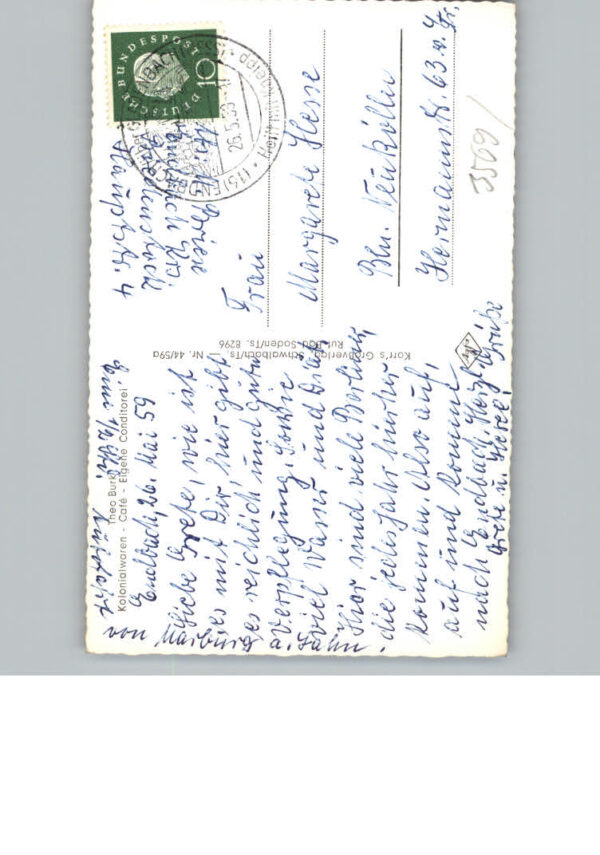 Theo Burk
Kolonialwaren - Café - Eigene Conditorei
Endbach, 26. Mai 59
Liebe Grete, wie ist
es mit Dir, hier gibt
es reichlich und gute
Verpflegung, sowie
viel Wasser und Diät
Hier sind viele Berliner,
die jedes Jahr hierher
kommen. Also auf,
auf und komme
nach Endbach, Herzl. Grüße
von Marburg a. Lahn.
Korr's Großverlag, Schwalbach/Ts. | Nr. 44/59a
Ruf Bad Soden/Ts. 8296
DEUTSCHE BUNDESPOST
10
(16) ENDBACH
26.5.59
Hauptstr. 4
Frau
Margarete Hesse
Bln. Neukölln
Hermannstr. 63 v. Tr.
3509/